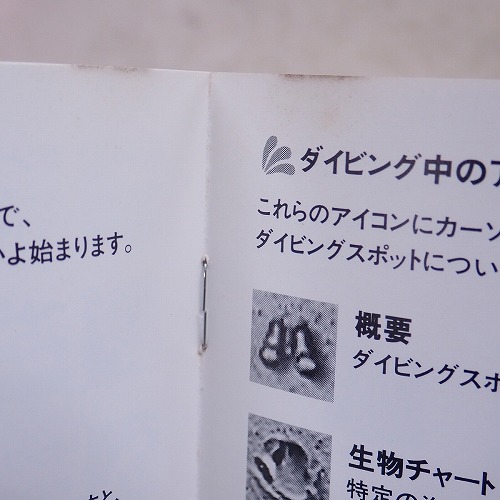 で、
よ始まります。
ダイビング中の
これらのアイコンにカーソ
ダイビングスポットについ
概要
ダイビングスポ
生物チャート
特定の